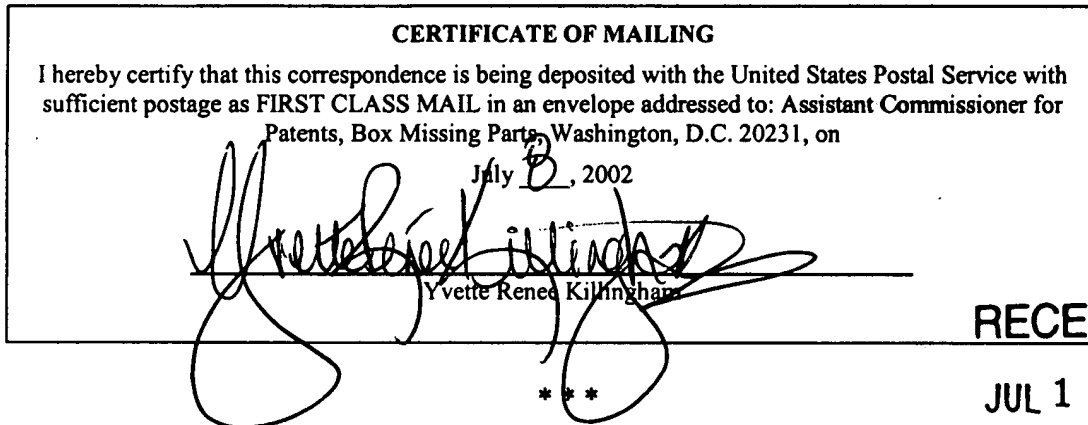 CERTIFICATE OF MAILING
I hereby certify that this correspondence is being deposited with the United States Postal Service with
sufficient postage as FIRST CLASS MAIL in an envelope addressed to: Assistant Commissioner for
Patents, Box Missing Parts, Washington, D.C. 20231, on
July 8, 2002
Yvette Renee Killingham
Yvette Renee Killingham
RECE
* * *
JUL 1